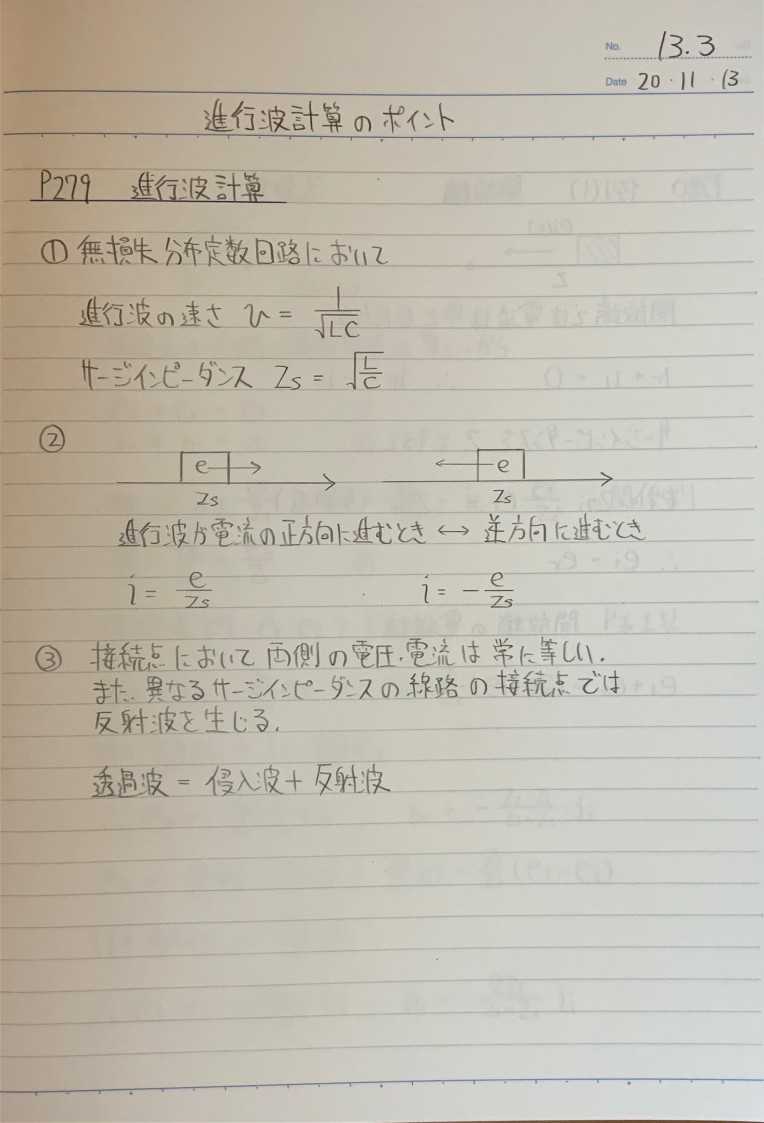 No. 13.3
Date 20・11・13
進行波計算のポイント
P279 進行波計算
① 無損失分布定数回路において
進行波の速さ υ = 1/√LC
サージインピーダンス Zs = √L/C
②
e → ← e
Zs Zs
進行波が電流の正方向に進むとき ↔ 逆方向に進むとき
i = e/Zs i = - e/Zs
③ 接続点において両側の電圧・電流は常に等しい.
また、異なるサージインピーダンスの線路の接続点では
反射波を生じる.
透過波 = 侵入波 + 反射波